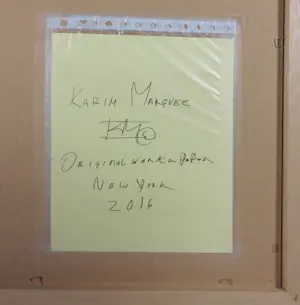 KARIM MARQUEZ
KM@
ORIGINAL WORK on PAPER
NEW YORK
2016